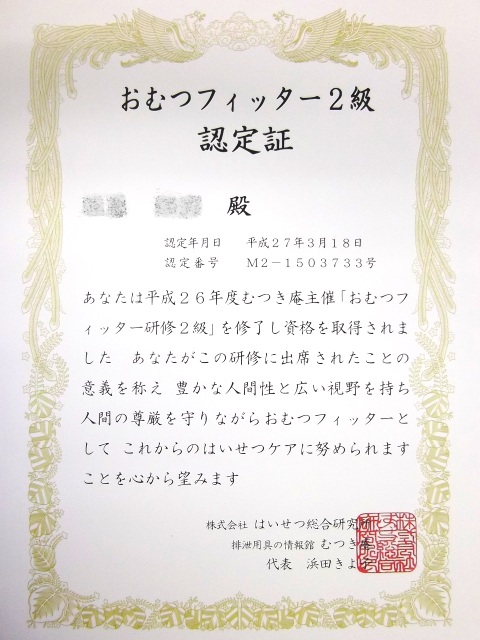 おむつフィッター２級
認定証
殿
認定年月日　平成２７年３月１８日
認定番号　Ｍ２－１５０３７３３号
あなたは平成２６年度むつき庵主催「おむつフ
ィッター研修２級」を修了し資格を取得されま
した　あなたがこの研修に出席されたことの
意義を称え　豊かな人間性と広い視野を持ち
人間の尊厳を守りながらおむつフィッターと
して　これからのはいせつケアに努められます
ことを心から望みます
株式会社　はいせつ総合研究所
排泄用具の情報館　むつき庵
代表　浜田きよ子